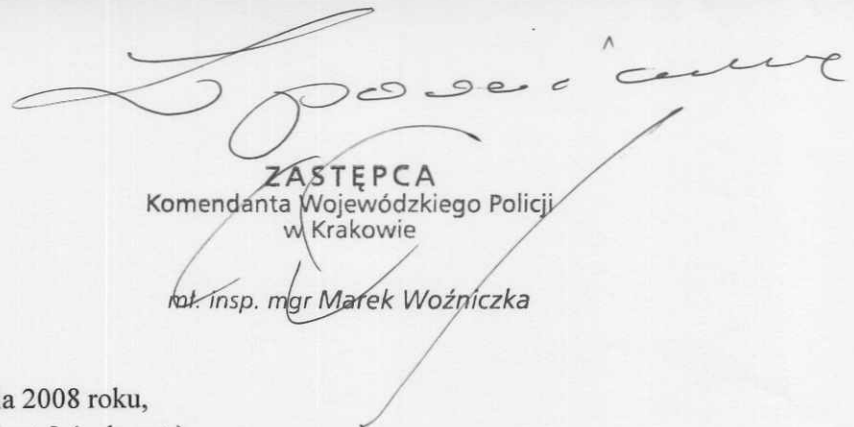 Z poważaniem
ZASTĘPCA
Komendanta Wojewódzkiego Policji
w Krakowie
mł. insp. mgr Marek Woźniczka
a 2008 roku,